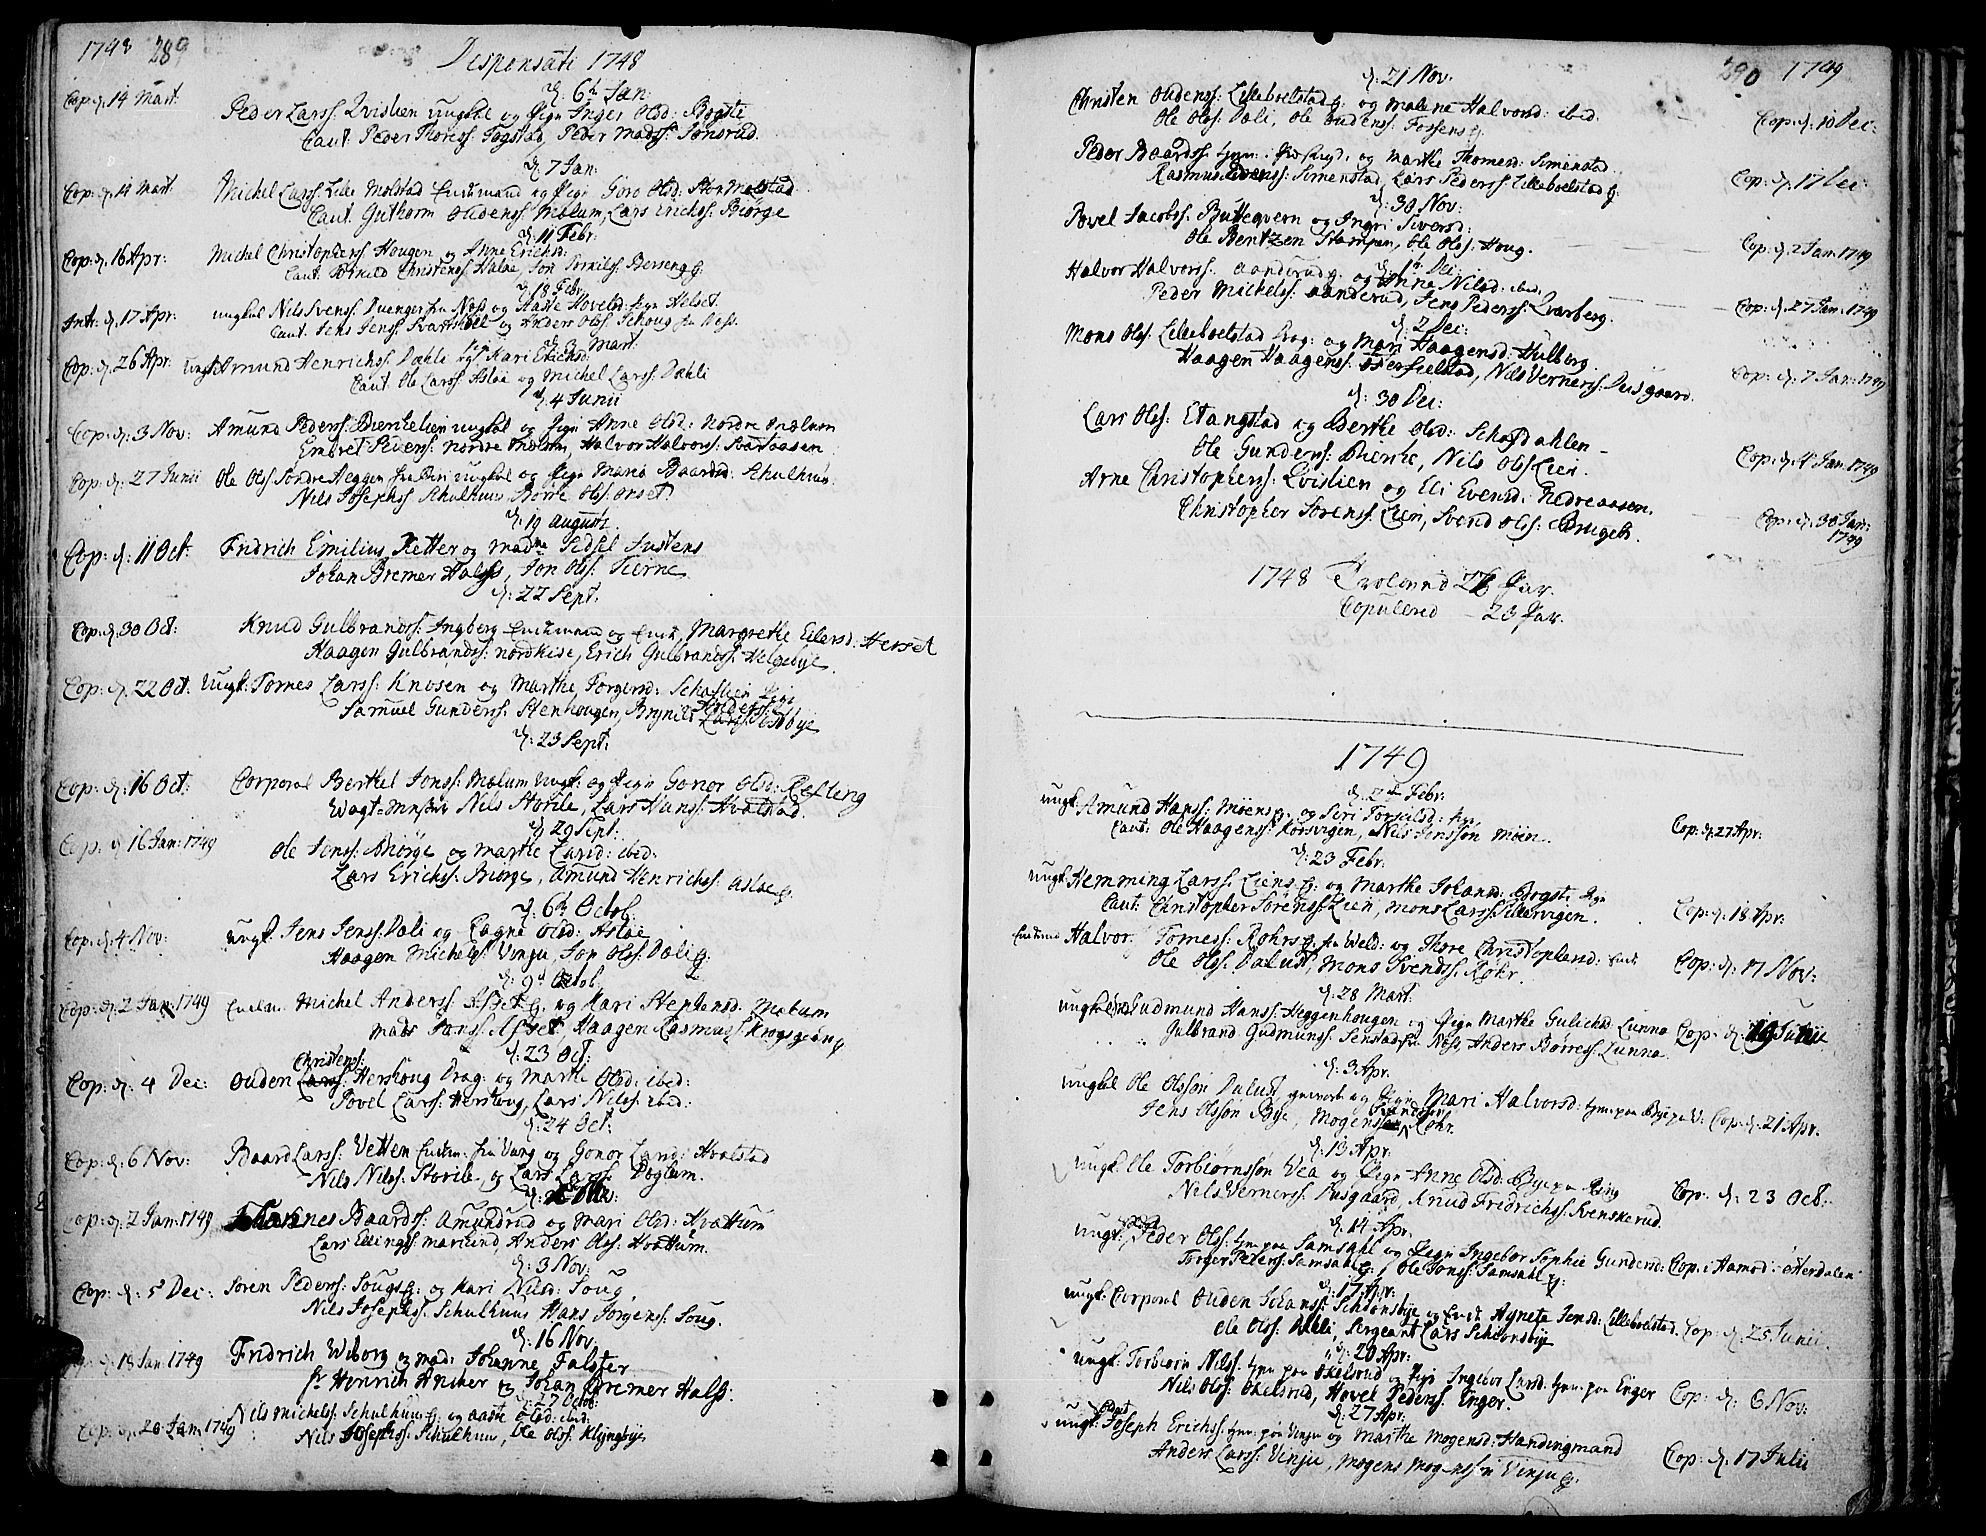 1748 289
Desponsati 1748
d: 6th Jan:
Cop: d. 14 Mart: Peder Larss: Qvislien ungkl og Pign Inger Olsd: Bogsti
Caut: Peder Thoress: Togstad, Peder Madss: Sonsrud
d. 7 Jan:
Cop: d. 14 Mart. Michel Larss Lille Molstad Enkemand og Pign Giøro Olsd: Stor Molstad
Caut. Guthorm Oudenss: Mælum, Lars Erichss: Biørge
d. 11 Febr:
Cop: d. 16 Apr: Michel Christophers: Haugen og Anne Ericksd:
Caut. Christenss: Halae, Jon
d. 18 Febr
Intr: d. 17 Apr: ungkal Nils Svenss: fra Næss og Aaste Hovelsd: pign Helset
Caut. Jens Jenss: og Anders Olss: Schoug fra Næss.
d. 3 Mart.
Cop: d. 26 Apr: ungk: Amund Henrichss: Dæhli og Kari Erichsd:
Caut Ole Larss: Asløe og Michel Larss: Dæhli
d. 4 Junii
Cop: d. 3 Nov: Amund Pederss: ungkal og Pign Anne Olsd: Nordre Mælum
Embret Pederss: Nordre Mælum, Halvor Halvorss: Svartaasen
Cop: d. 27 Junii Ole Olss Søndre Heggen ungkal og Pign Maria Baardsd: Schulhuus
Nils Josephss Schulhuus Børre Olss: Onset
d. 19 Augusti.
Cop: d. 11 Oct: Fridrich Emilius Ketter og Madme Sidsel Justens
Johan Bremer Halss, Jon Olss: Tierne
d. 22 Sept.
Cop: d. 30 Oct: Knud Gulbrandss: Ingberg Enkemand og Enk. Margrethe Eilersd: Herset
Haagen Gulbrandss: Nordkise, Erich Gulbrandss: Helgebye
Cop: d. 22 Oct. Ungk: Tornes Larss: Knosen og Marthe Torgersd: Schaslien pign
Samuel Gunderss: Stenhougen, Brynild Anderss: Larss: Tostbye
d. 23 Sept.
Cop: d. 16 Oct: Corporal Berthel Jonss: Mælum Ungk: og Pign Gonor Olsd: Refling
Wagt-Mester Nils Storile, Lars Hanss: Hvalstad.
d. 29 Sept:
Cop: d. 16 Jan: 1749 Ole Jenss: Biørge og Marthe Larsd: ibed:
Lars Erichss: Biørge, Amund Henrichss: Asløe
d. 6th Octob:
Cop: d. 4 Nov: ungk. Jens Jenss: Dæli og Ragne Olsd: Asløe
Haagen Michelss Vinju, Jon Olss: Dæli
d. 9d Octob:
Cop: d. 2 Jan: 1749 Enkem. Michel Anderss og Kari Stephensd: Mælum
Mads Janss: Haagen Rasmuss: Krogsgeang
d. 23 Oct:
Cop: d. 4 Dec: Ouden Christenss: Larss: Hershoug Drag: og Marthe Olsd: ibed:
Povel Larss: Hershoug, Lars Nilss: ibed:
d. 24 Oct:
Cop: d. 6 Nov: Baard Larss: Vetten Enkem: fra Vang og Gonor Larsd: Hvalstad
Nils Nilss: Storile og Lars Larss: Doglum.
Cop: d. 2 Jan: 1749 Johannes Baardss: Amundrud og Mari Olsd: Hvattum
Lars Ellingss Marlund, Anders Olss: Hvattum.
d. 3 Nov:
Cop: d. 5 Dec: Soren Pederss: Soug og Kari Nilsd: Soug.
Nils Josephss: Schulhuus Hans Jørgenss: Soug.
d. 16 Nov:
d. 19 Jan 1749 Fridrich Wiborg og Mad: Johanne Falster
Sr Henrich Ancher og Johan Bremer Halss:
d. 27 Octob:
Cop: d. 20 Jan: 1749 Nils Michelss: Schulhuus og Aaste Olsd: ibed:
Nils Josephss: Schulhuus, Ole Olss: Klyngbye
290 1749
d: 21 Nov:
Christen Oudenss: Lilleboelstad og Malene Halvorsd: ibed. Cop: d. 10 Dec:
Ole Olss: Dæli, Ole Oudenss: Fossens
Peder Baardss: og Marthe Thomesd: Simenstad
Rasmus Simenstad, Lars Pederss: Lilleboelstad Cop: d. 17 Dec:
d. 30 Nov:
Povel Jacobss: Butteqvern og Ingri Siversd:
Ole Bentzen Stampen, Ole Olss: Houg. Cop: d. 2 Jan: 1749
d. 1 Dec
Halvor Halvorss. Aanderud og Anna Nilsd: ibed.
Peder Michelss: Aanderud, Jens Pederss: Qvarberg. Cop: d. 27 Jan: 1749
d. 2 Dec:
Mons Olss: Lilleboelstad Drag: og Mari Haagensd: Hulberg
Haagen Haagenss: Nils Vernerss: Diisgaard. Cop: d. 7 Jan: 1749
d. 30 Dec:
Lars Olss: Etangstad og Berthe Olsd: Schossdahlen
Ole Gunderss: Bierche, Nils Olss Lien. Cop: d. 4 Jan: 1749
Arne Christophers: Qvislien og Eli Evensd: Nedreaasen.
Christopher Sorenss: Lien, Svend Olss: Brugeli. Cop: d. 30 Jan: 1749
1748 Trolovvd 27 Par.
Copulerid 20 Par.
1749
d. 2den Febr:
ungk Amund Hanss: Moens og Siri Torgilsd: pign
Caut: Ole Haagenss: Korsvigen, Nils Jenssøn Moen. Cop: d. 27 Apr:
d. 23 Febr.
ungk Hemming Larss: Liens og Marthe Johansd: Bogsti Pign
Caut: Christopher Sorenss: Lien, Mons Larss: Sillervigen. Cop: d. 18 Apr:
Enkemd Halvor Tomess: Rohrs fra Weld: og Thore Christophersd: Enk
Ole Olss: Dalust, Mons Svendss: Rohr. Cop: d. 17 Nov:
d. 28 Mart:
ungkl Gudmund Hanss: Heggenhougen og Pign Marthe Gulichsd Lunna Cop: d. 19 Junii
Gulbrand Gudmunss: Senstad fra Ness Anders Børress: Lunna.
d. 3 Apr:
ungkl Ole Olsson Dalust, og Pign Mari Halvorsd: Cop: d. 21 Apr.
Jens Olsson Bye, Mogens Svendsøn Rohr.
d. 13 Apr:
ungk Ole Torbiornsson Vea og Pign Anne Olsd: Bye
Nils Vernerss: Diisgaard, Knud Fridrichss: Svenskerud. Cop: d. 23 Oct:
d. 14 Apr.
ungk: Peder Olss: tjen: paa Samsahl og Pign Ingebor Sophie Gundersd: Cop: i Aamod: Østerdalen
Torger Peterss: Samsahl, Ole Jonss: Samsahl
d. 17 Apr:
ungk: Corporal Ouden Johanss: Schionsbye og Enk. Agneta Jensd: Lilleboelstad. Cop: d. 25 Junii
Ole Olss: Dæli, Sergeant Lars Schionsbye
d. 20 Apr:
ungk: Torbiorn Nilss: tjen: paa Okelsrud og Pign Ingebor Larsd: tjen: paa Enger Cop: d. 6 Nov:
Nils Olss: Okelsrud, Hovel Pederss: Enger.
d. 27 Apr:
ungk: Joseph Erichss: tjen: paa Vinju og Marthe Mogensd: Handingmand
Anders Larss: Vinju, Mogens Mogenssøn Vinju Cop: d. 17 Julii